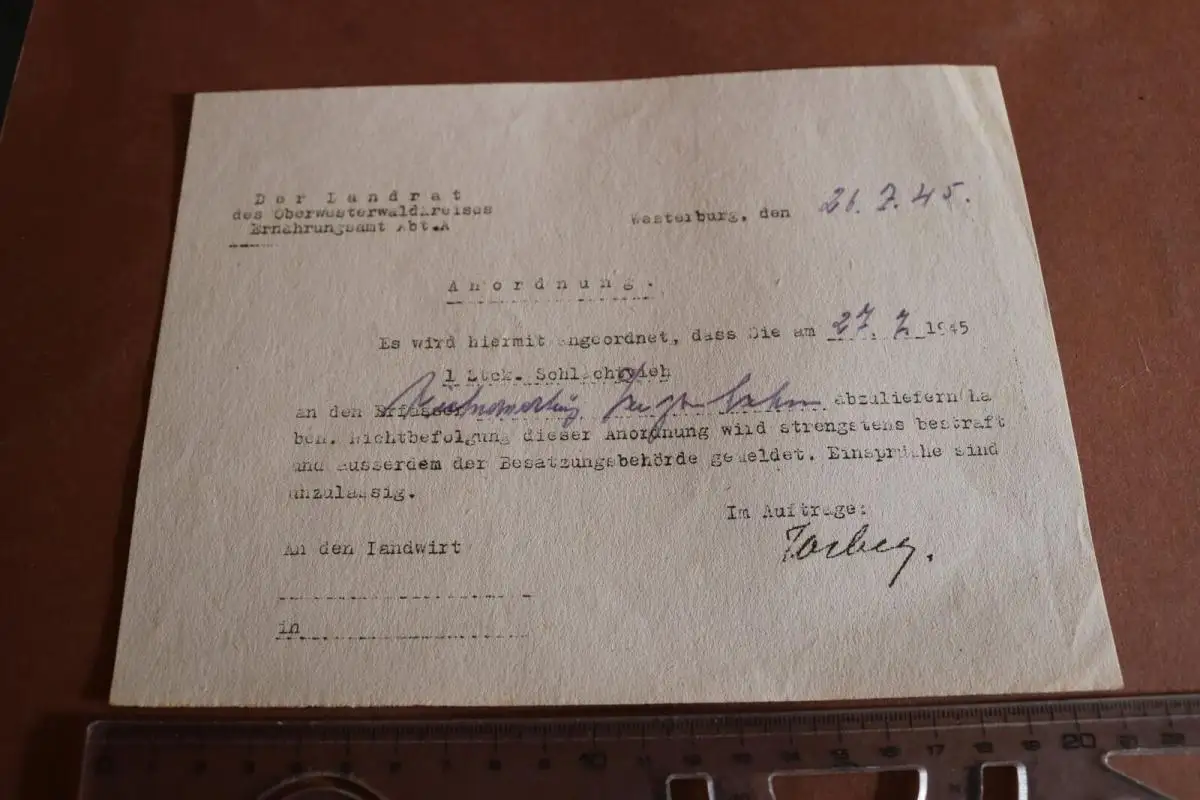 Der Landrat
des Oberwesterwaldkreises
Ernährungsamt Abt.A
Westerburg, den 26.7.45.
Anordnung.
Es wird hiermit angeordnet, dass Sie am 27. 7. 1945
1 Stck. Schlachtvieh
an den Erfasser abzuliefern ha
ben. Nichtbefolgung dieser Anordnung wird strengstens bestraft
und ausserdem der Besatzungsbehörde gemeldet. Einsprüche sind
unzulässig.
Im Auftrage:
An den Landwirt
in
0 1 2 3 4 5 6 7 8 9 10 11 12 13 14 15 16 17 18 19 20 21 22